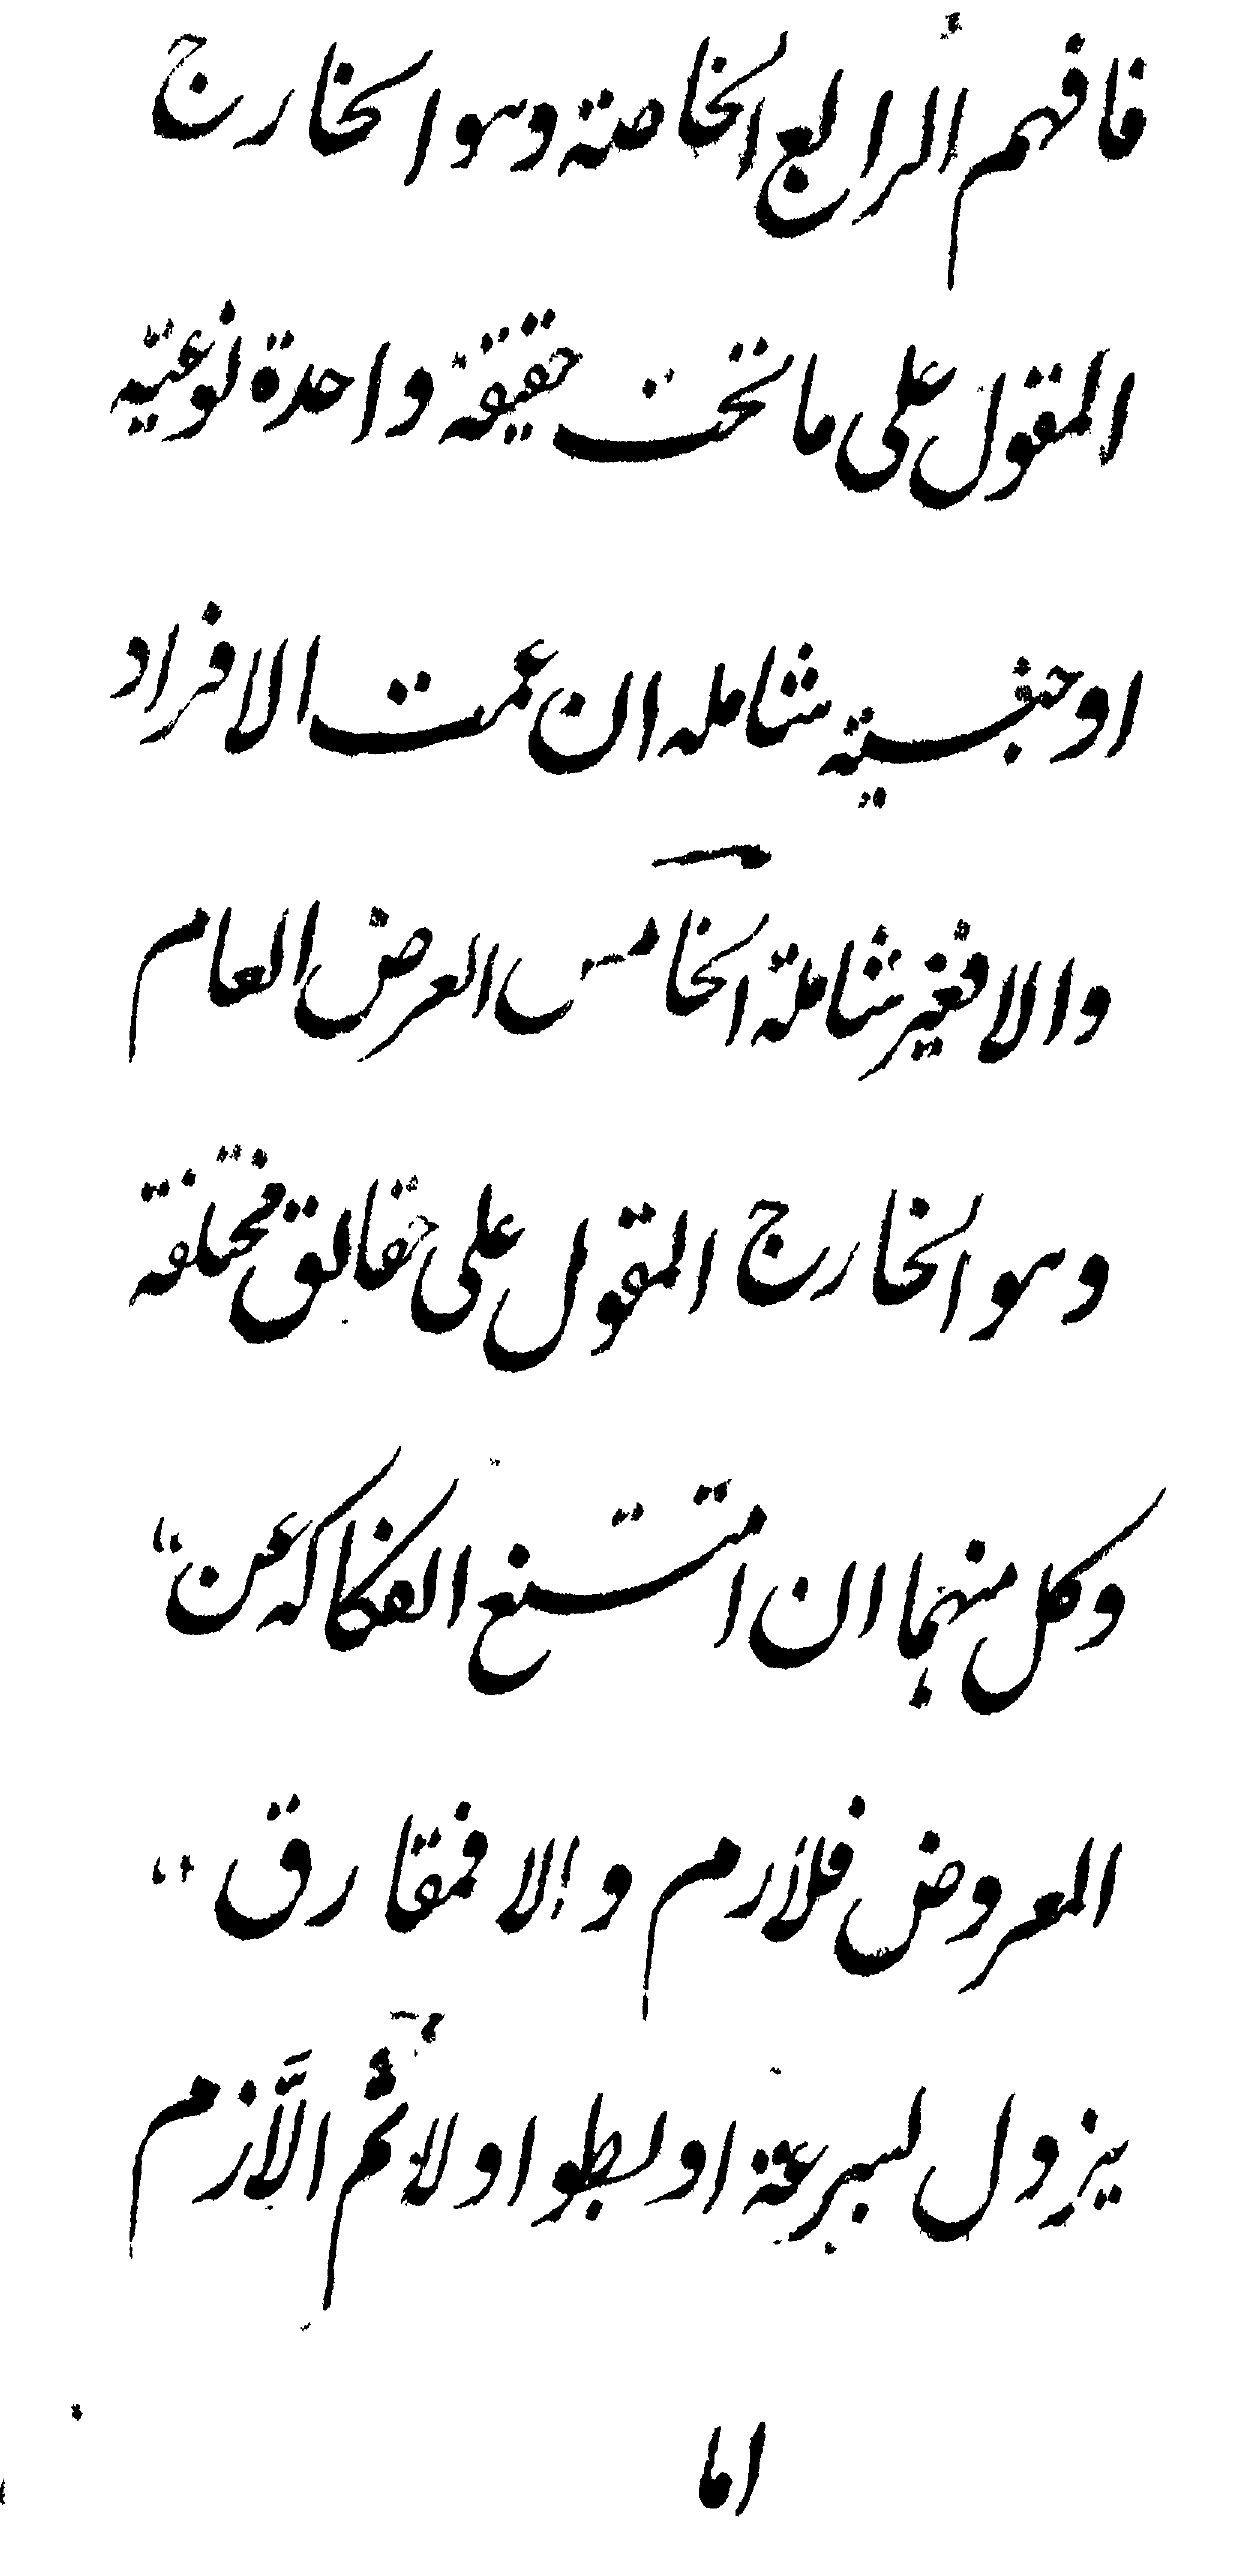 فافهم الرابع الخاصة وهو الخارج
المقول على ما تحت حقيقة واحدة نوعية
او جنسية شامله ان عمت الافراد
والا فغير شاملة الخامس العرض العام
وهو الخارج المقول على حقائق مختلفة
وكل منهما ان امتنع انفكاكه عن
المعروض فلازم والا فمفارق
يزول بسرعة او بطوء او لا ثم اللازم
اما